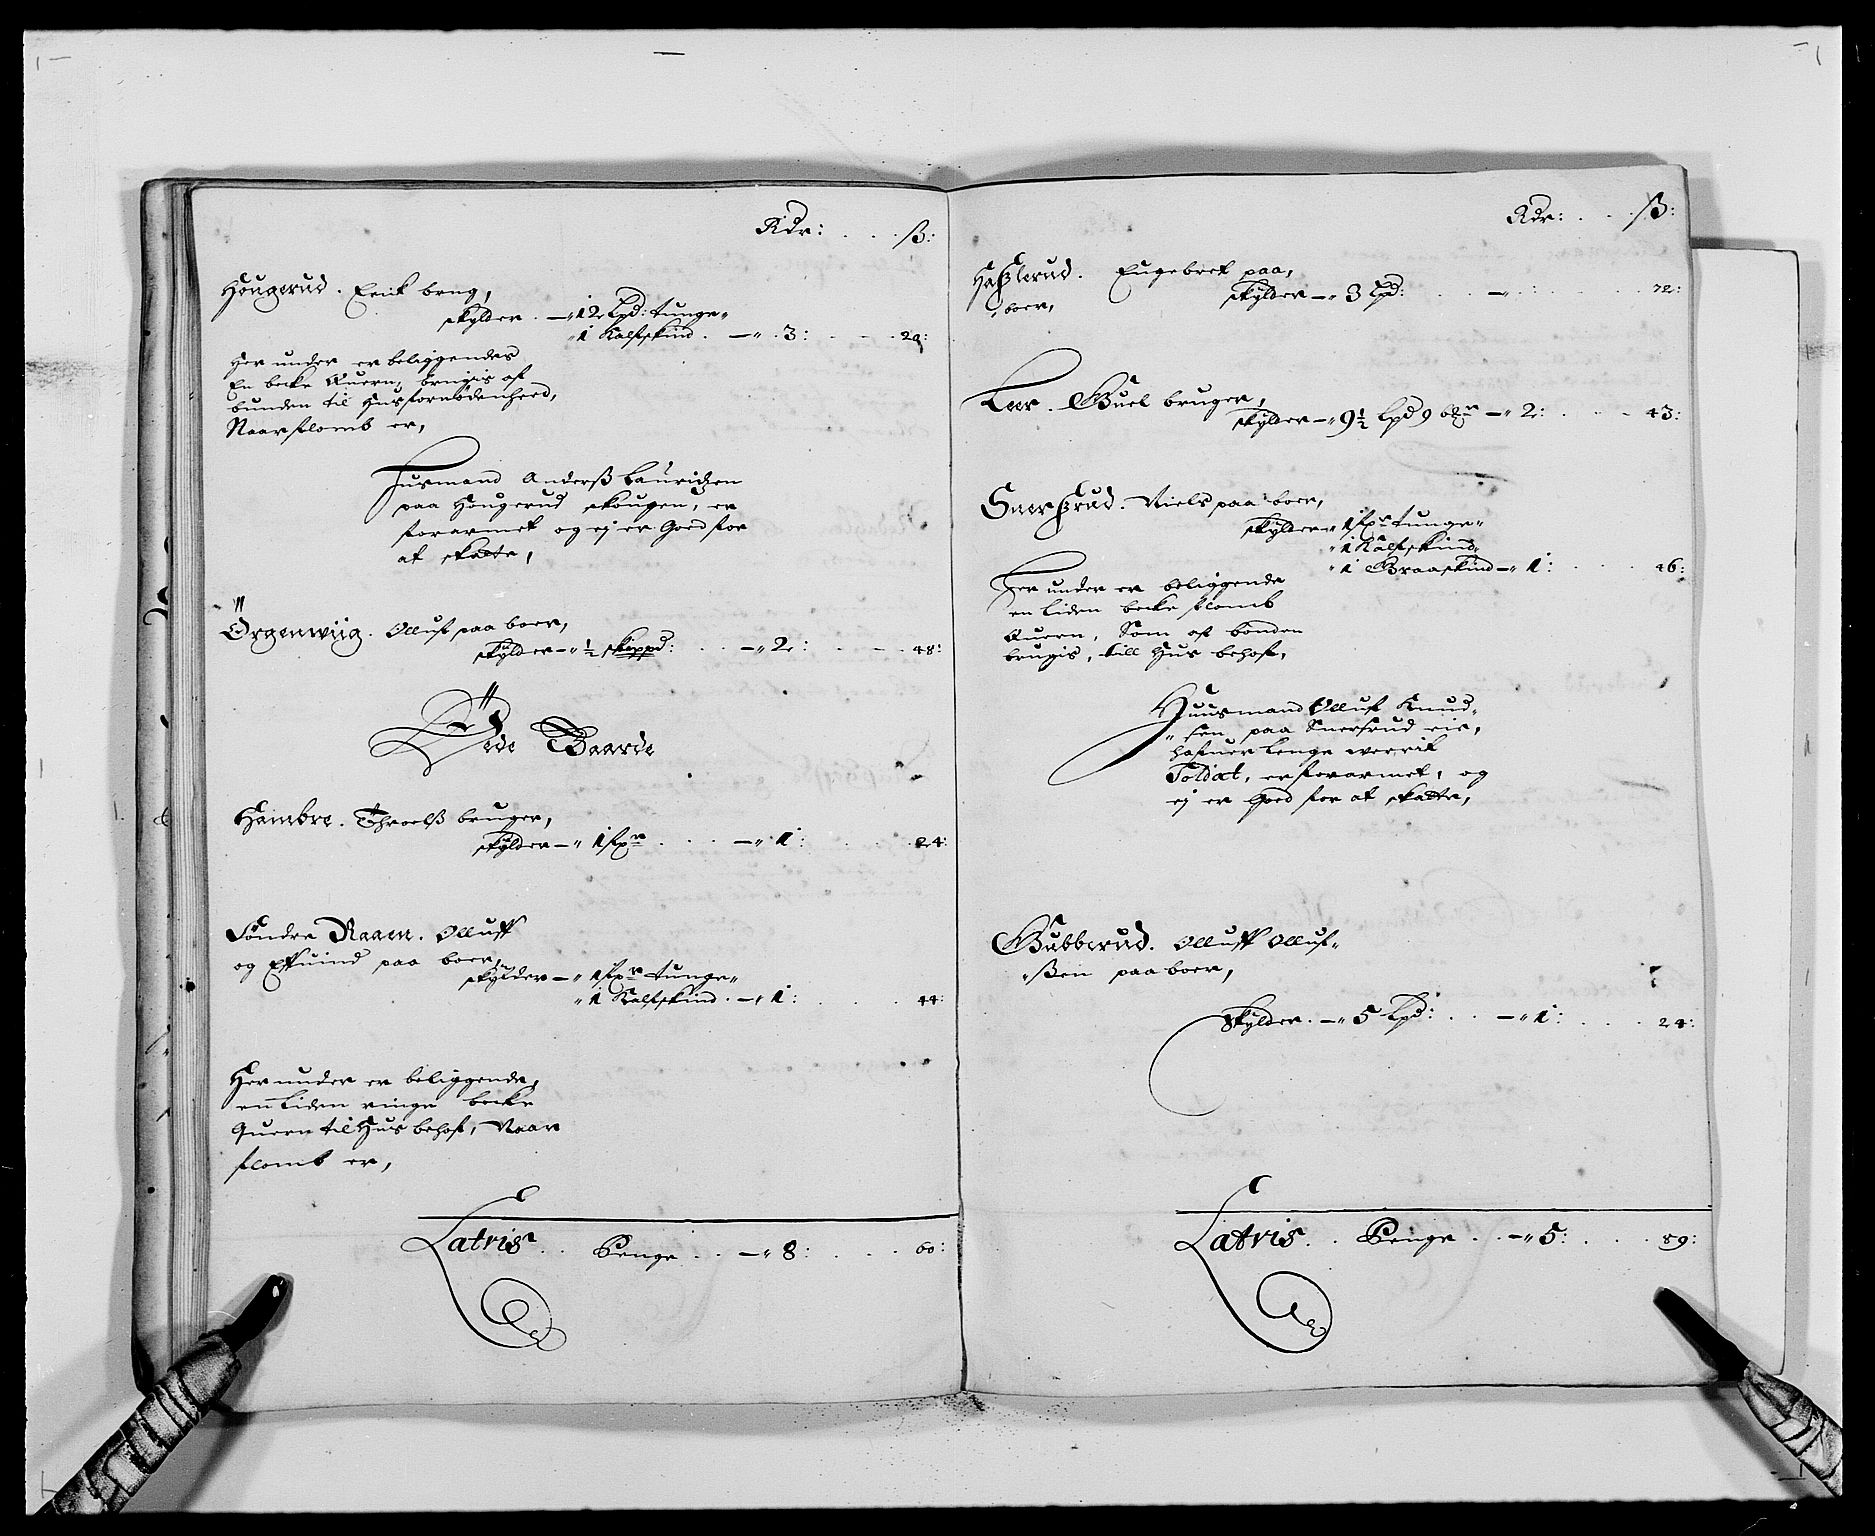 Rdr: . . . ß:
Hougerud. Erik brug,
skylder. — „ 12 Lpd: tunge „
„ 1 Kalfskind. — „ 3: . . . 20:
Her under er beliggendes
En becke Quern, brugis af
bunden til Husfornødenhed,
Naar flomb er,
Huusmand Anderß Lauridzen
paa Hougerud skougen, er
forarmet og ej er Goed for
at skatte,
Ørgenwiig. Olluf paa boer,
skylder — „ ½ skippd: . . — „ 2: . . . 48:
Øde Gaarde
Hambre. Throelß bruger,
skylder — „ 1 fxr . . . — „ 1: . . . 24:
Søndre Raaen. Olluff
og Effuind paa boer,
skylder — „ 1 fxr tunge „
„ 1 Kalfskind. — „ 1: . . . 44:
Her under er beliggende,
en liden ringe becke
Quern til Hus behof, Naar
flomb er,
Latris. . . Penge . . — „ 8: . . . 60:
Rdr: . . . ß:
Haßlerud. Engebret paa,
boer,
skylder — „ 3 Lpd: . . — „ : . . . 72:
Lier. Guel bruger,
skylder — „ 9½ Lpd 9 — „ 2: . . . 43:
Snerßrud. Niels paa boer,
skylder „ 1 fxr tunge „
„ 1 Kalfskind,
„ 1 Graaskind — „ 1: . . . 46:
Her under er beliggende
en liden becke flomb
Quern, Som af bonden
brugis, till Hus behof,
Huusmand Olluf Knud„
„sen paa Snersrud eie,
hafuer lenge werrit
Soldat, er forarmet, og
ej er Goed for at skatte,
Gubberud. Olluff Olluf„
„ßen paa boer,
Skylder. — „ 5 Lpd: . . — „ 1: . . . 24:
Latris. . . Penge . . — „ 5: . . . 89: